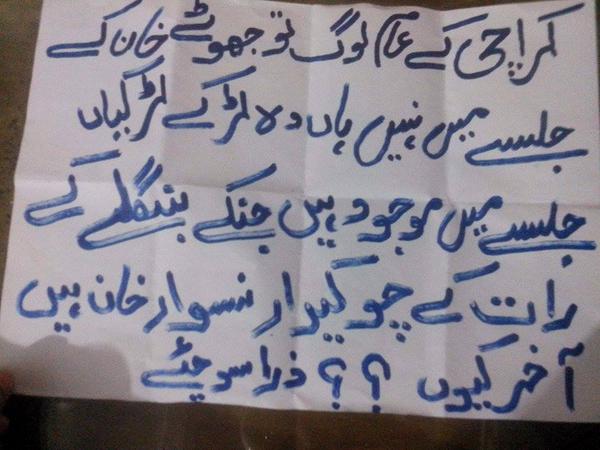 کراچی کے عام لوگ تو جھوٹے خان کے
جلسے میں نہیں ہاں وہ لڑکے لڑکیاں
جلسے میں موجود ہیں جنکے بنگلے کے
رات کے چوکیدار نسوار خان ہیں
آخر کیوں ؟؟ ذرا سوچئے